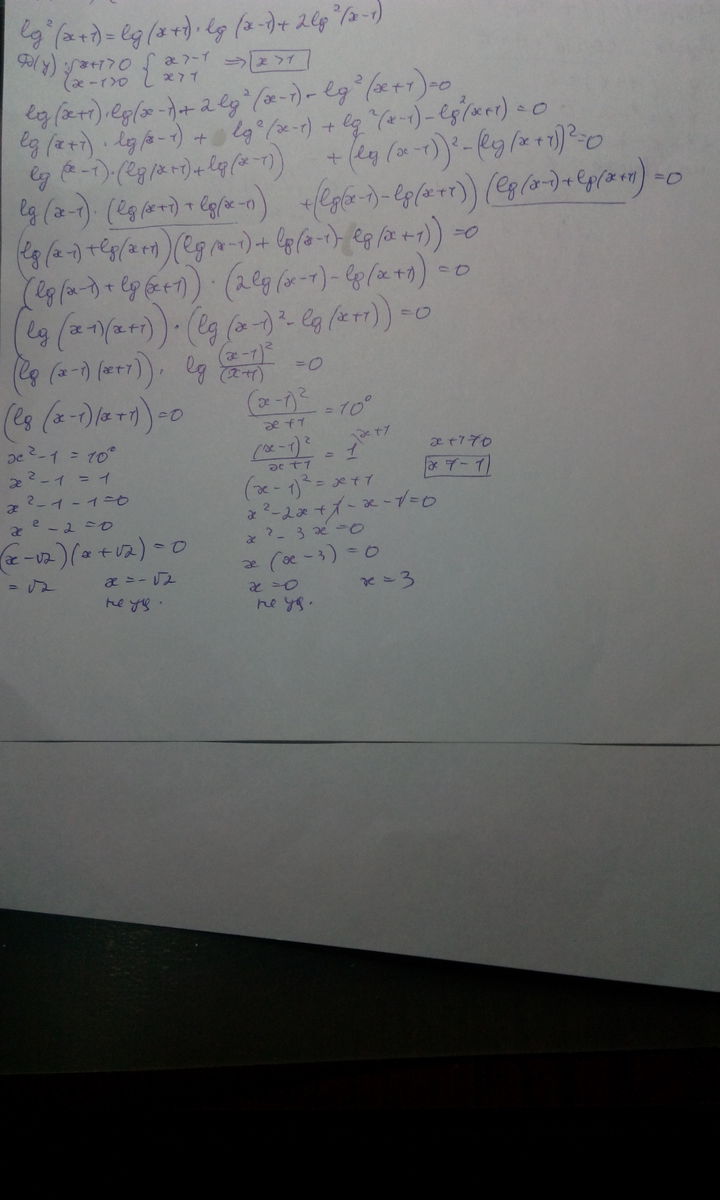 lg²(x+1)=lg(x+1)·lg(x-1)+2lg²(x-1)
D(y): { x+1>0 { x>-1 ⇒ x>1
{ x-1>0 { x>1
lg(x+1)·lg(x-1)+2lg²(x-1)-lg²(x+1)=0
lg(x+1)·lg(x-1)+lg²(x-1)+lg²(x-1)-lg²(x+1)=0
lg(x-1)·(lg(x+1)+lg(x-1)) +(lg(x-1))²-(lg(x+1))²=0
lg(x-1)·(lg(x+1)+lg(x-1)) +(lg(x-1)-lg(x+1))(lg(x-1)+lg(x+1))=0
(lg(x-1)+lg(x+1))(lg(x-1)+lg(x-1)-lg(x+1))=0
(lg(x-1)+lg(x+1))·(2lg(x-1)-lg(x+1))=0
(lg(x-1)(x+1))·(lg(x-1)²-lg(x+1))=0
(lg(x-1)(x+1))·lg (x-1)²/(x+1) =0
(lg(x-1)(x+1))=0
x²-1=10⁰
x²-1=1
x²-1-1=0
x²-2=0
(x-√2)(x+√2)=0
=√2 x=-√2
не уд.
(x-1)²/x+1 =10⁰
(x-1)²/x+1 = 1 x+1
(x-1)²=x+1
x²-2x+1-x-1=0
x²-3x=0
x(x-3)=0
x=0 x=3
не уд.
x+1≠0
x≠-1